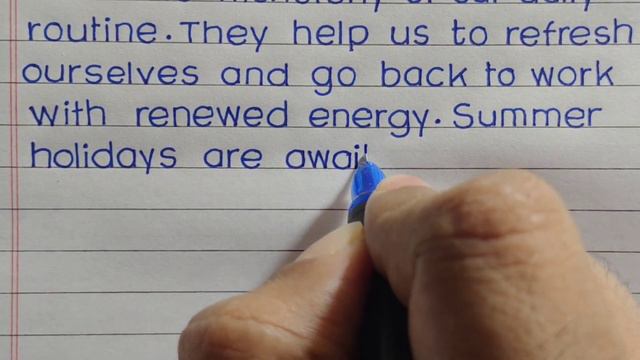 routine. They help us to refresh
ourselves and go back to work
with renewed energy. Summer
holidays are awai